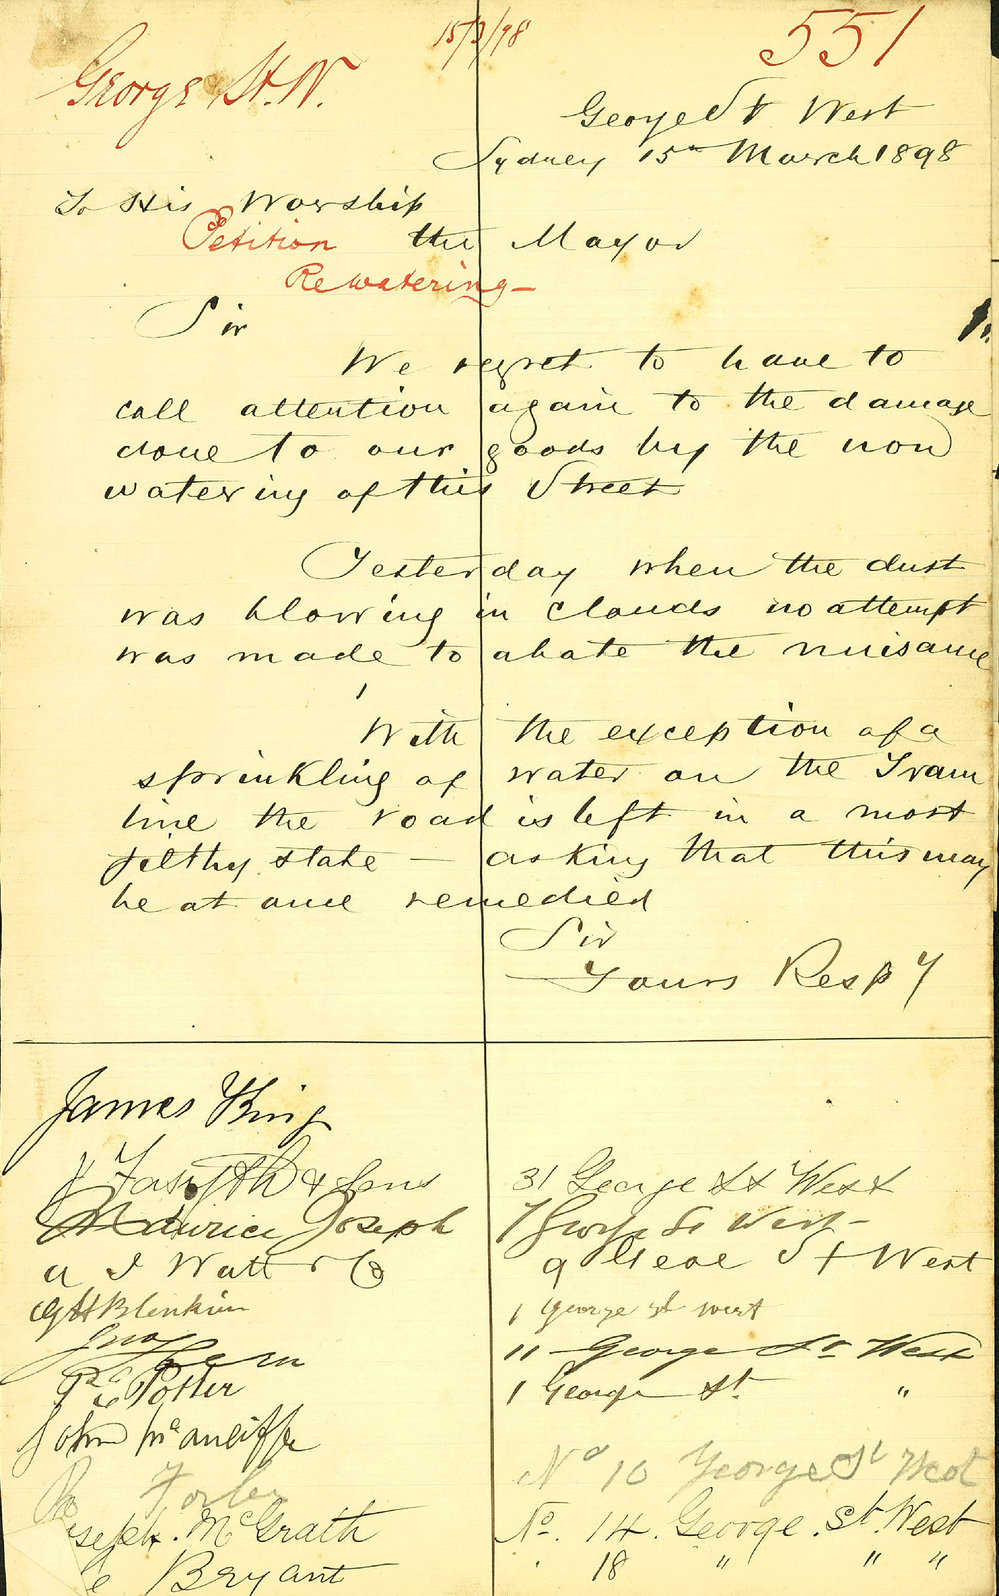 15/3/98
551
George St. W.
George St West
Sydney 15th March 1898
To His Worship
Petition the Mayor
Re watering -
Sir
We regret to have to
call attention again to the damage
done to our goods by the non
watering of this Street
Yesterday when the dust
was blowing in clouds no attempt
was made to abate the nuisance
With the exception of a
sprinkling of water on the Tram
line the road is left in a most
filthy state - asking that this may
be at once remedied
Sir
Yours Resp y
James King
J Forsyth & Sons 31 George St West
Maurice Joseph 7 George St West -
A J Watt & Co 9 George St West
G H Blenkin 1 george st west
11 George St West
Potter 1 George St. "
John McAuliffe
Forbes No 10 George St West
Joseph McGrath No. 14. George. St. West
Bryant 18 " " "